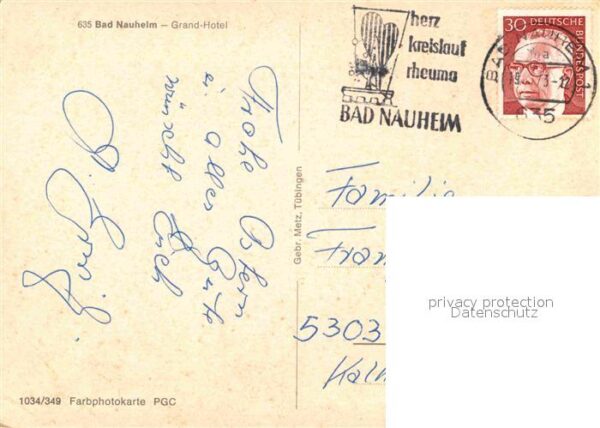 635 Bad Nauheim — Grand-Hotel
herz
kreislauf
rheuma
BAD NAUHEIM
30 DEUTSCHE BUNDESPOST
BAD NAUHEIM
635
Frohe Ostern
u. alles Gute
wünscht Euch
Gebr. Metz, Tübingen
Familie
Fran
5303
privacy protection
Datenschutz
1034/349 Farbphotokarte PGC